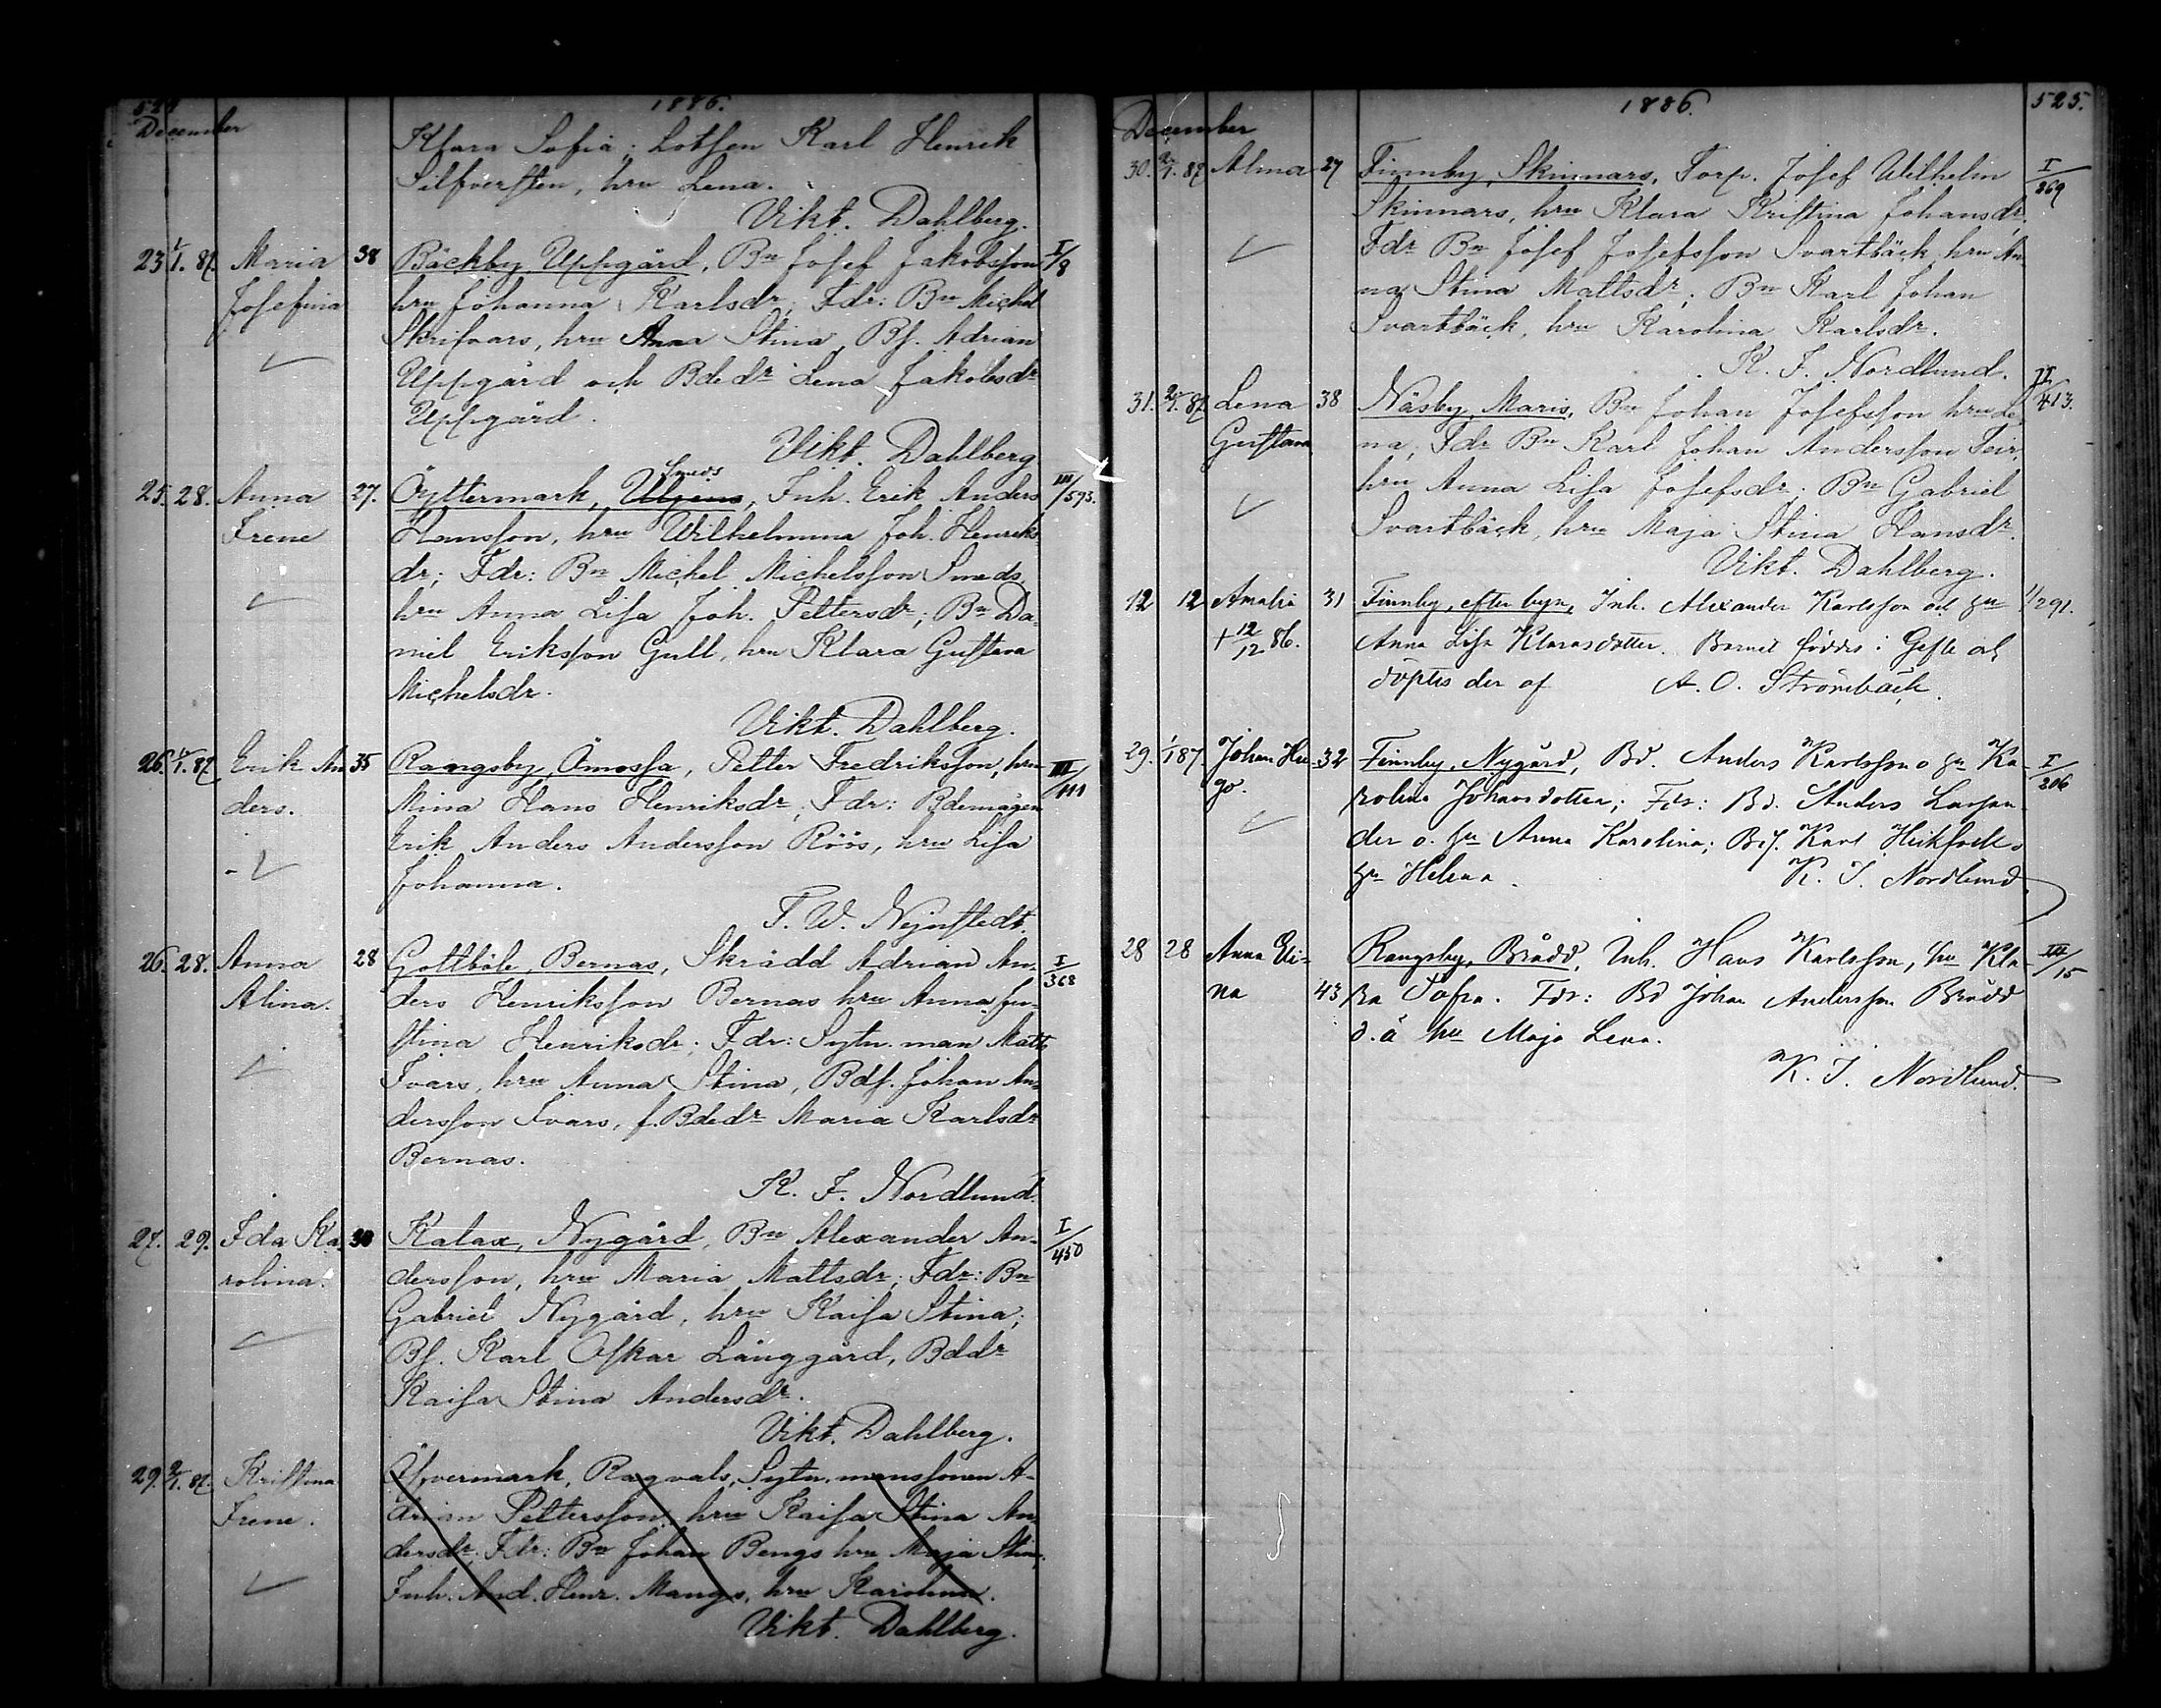 524
1886.
December
Klara Sofia; Lotsen Karl Henrik
Silfversten, hru Lena.
Vikt. Dahlberg.
23 1/1. 87. Maria 38 Bäckby, Uppgård, Bn Josef Jakobsson I/8
Josefina hru Johanna Karlsdr; Fdr: Bn Michel
Skrifvars, hru Anna Stina, Bs. Adrian
Uppgård och Bdedr Lena Jakobsdr
Uppgård.
Vikt. Dahlberg
Smeds
25. 28. Anna 27. Öyttermark, Inh. Erik Anders III/593.
Irene Hansson, hru Wilhelmina Joh. Henriks
dr; Fdr: Bn Michel Michelsson Smeds,
hru Anna Lisa Joh. Pettersdr; Bn Da-
niel Eriksson Gull, hru Klara Gustava
Michelsdr.
Vikt. Dahlberg.
26. 1/1. 87. Erik An 35 Rangsby, Ömossa, Petter Fredriksson, hru III/111
ders. Mina Hans Henriksdr; Fdr: Bdemågen
Erik Anders Andersson Röös, hru Lisa
Johanna.
F. W. Nejnstedt.
26. 28. Anna 28 Gottböle, Bernas, Skrädd Adrian An- I/368
Alina. ders Henriksson Bernas hru Anna Ju-
stina Henriksdr; Fdr: Sytn. man Matts
Ivars, hru Anna Stina, Bds. Johan An-
dersson Ivars, f. Bdedr Maria Karlsdr
Bernas.
K. J. Nordlund.
27. 29. Ida Ka 30 Kalax, Nygård, Bn Alexander An- I/450
rolina. dersson, hru Maria Mattsdr; Fdr: Bn
Gabriel Nygård, hru Kaisa Stina;
Bs. Karl Oskar Långgård, Bddr
Kaisa Stina Andersdr.
Vikt. Dahlberg.
29. 2/1. 87. Kristina Öfvermark, Ragvals, Sytn. manssonen A-
Irene. drian Pettersson, hru Kaisa Stina An
dersdr, Fdr: Bn Johan Bengs hru Maja Stina;
Inh. And. Henr. Mangs, hru Karolina.
Vikt. Dahlberg.
1886. 525.
December
30. 2/1. 87 Alma 27 Finnby, Skinnars, Torp. Josef Wilhelm I/269
Skinnars, hru Klara Kristina Johansdr,
Fdr Bn Josef Josefsson Svartbäck hru An-
na Stina Mattsdr; Bn Karl Johan
Svartbäck, hru Karolina Karlsdr.
K. J. Nordlund.
31. 2/1. 87 Lena 38 Näsby, Maris, Bn Johan Josefsson hru Le II/413.
Gustava na; Fdr Bn Karl Johan Andersson Teir,
hru Anna Lisa Josefsdr; Bn Gabriel
Svartbäck, hru Maja Stina Hansdr.
Vikt. Dahlberg.
12 12 Amalia 31 Finnby, efter byn, Inh. Alexander Karlsson och hu I/291.
† 12/12 86. Anna Lisa Klarasdotter. Barnet föddes i Gefle och
döptes der af A. O. Strömbäck.
29. 1/1 87. Johan Hu- 32 Finnby, Nygård, Bd. Anders Karlsson o hu Ka- I/206
go. rolina Johansdotter; Fdr: Bd. Anders
der o. hu Anna Karolina; Bs. Karl
hu Helena. K. J. Nordlund
28 28 Anna Eli- Rangsby, Brådd, Inh. Hans Karlsson, hu Kla- III/15
na 43 ra Sofia. Fdr: Bd Johan Andersson Brådd
d.ä hu Maja Lena.
K. J. Nordlund.